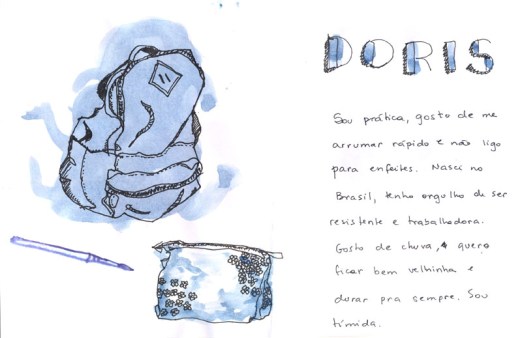 DORIS
Sou prática, gosto de me
arrumar rápido e não ligo
para enfeites. Nasci no
Brasil, tenho orgulho de ser
resistente e trabalhadora.
Gosto de chuva, quero
ficar bem velhinha e
durar pra sempre. Sou
tímida.